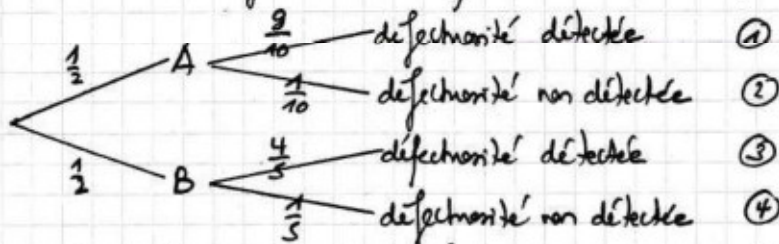 9/10 défectuosité détectée ①
1/2 A
1/10 défectuosité non détectée ②
4/5 défectuosité détectée ③
1/2 B
1/5 défectuosité non détectée ④